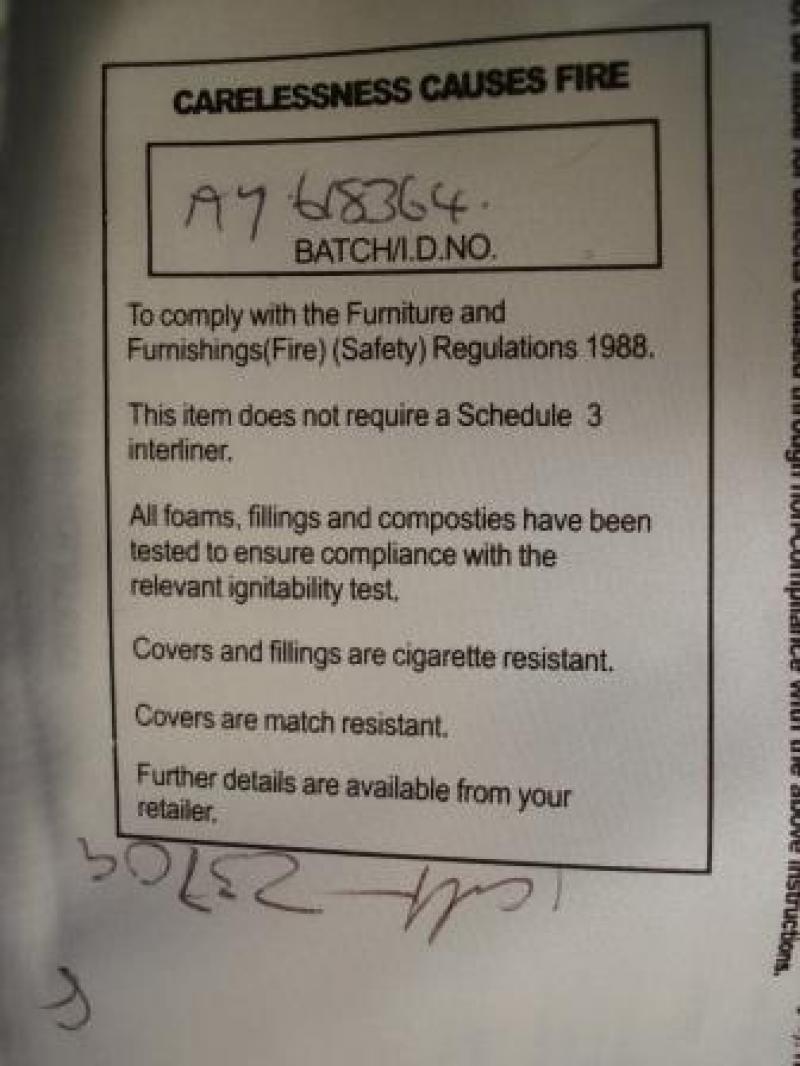 CARELESSNESS CAUSES FIRE
AY 618364.
BATCH/I.D.NO.
To comply with the Furniture and
Furnishings(Fire) (Safety) Regulations 1988.
This item does not require a Schedule 3
interliner.
All foams, fillings and composties have been
tested to ensure compliance with the
relevant ignitability test.
Covers and fillings are cigarette resistant.
Covers are match resistant.
Further details are available from your
retailer.
for defects caused through non-compliance with the above instructions.